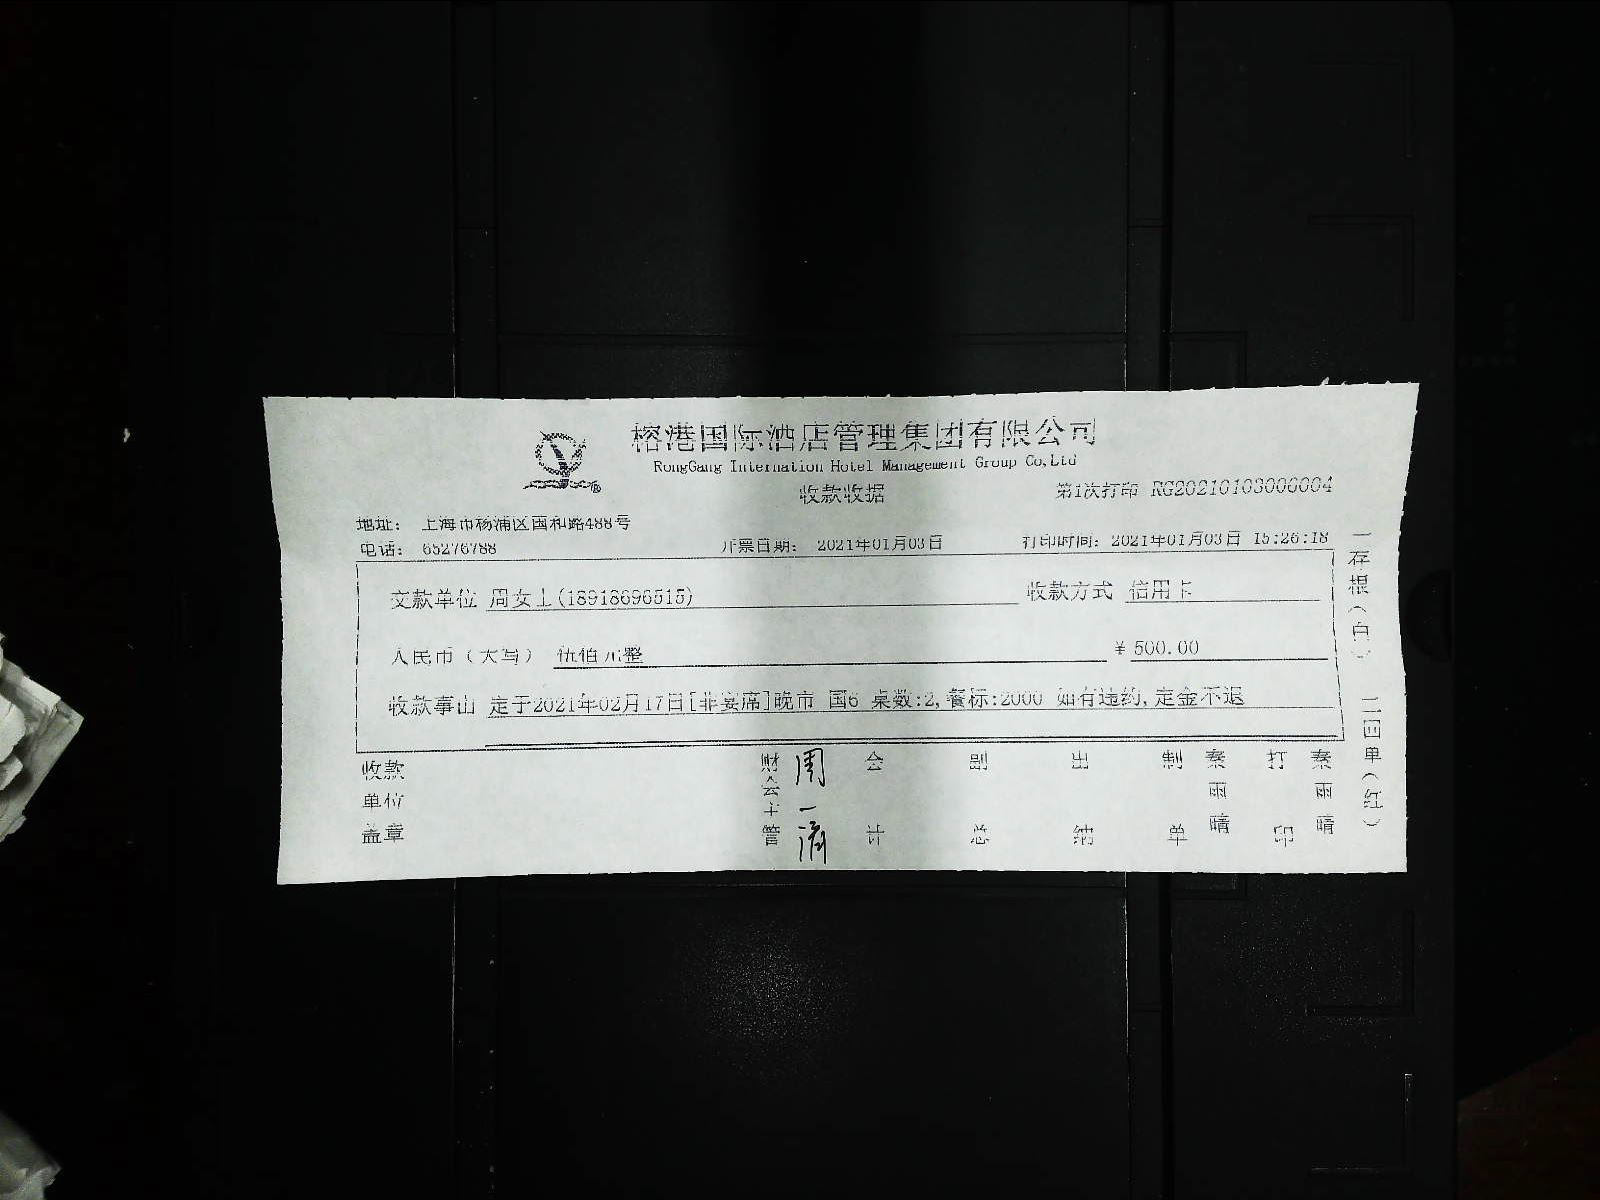 榕港国际酒店管理集团有限公司
RongGang Internation Hotel Management Group Co,Ltd
收款收据
第1次打印 RG20210103000004
地址: 上海市杨浦区国和路488号
电话: 65276788 开票日期: 2021年01月03日 打印时间: 2021年01月03日 15:26:18
交款单位 周女士(18918696515) 收款方式 信用卡
人民币(大写) 伍佰元整 ¥ 500.00
收款事由 定于2021年02月17日[非宴席]晚市 国6 桌数:2,餐标:2000 如有违约,定金不退
收款单位盖章
财会主管 周一
会计
副总
出纳
制单 秦雨晴
打印 秦雨晴
一存根(白)
二回单(红)